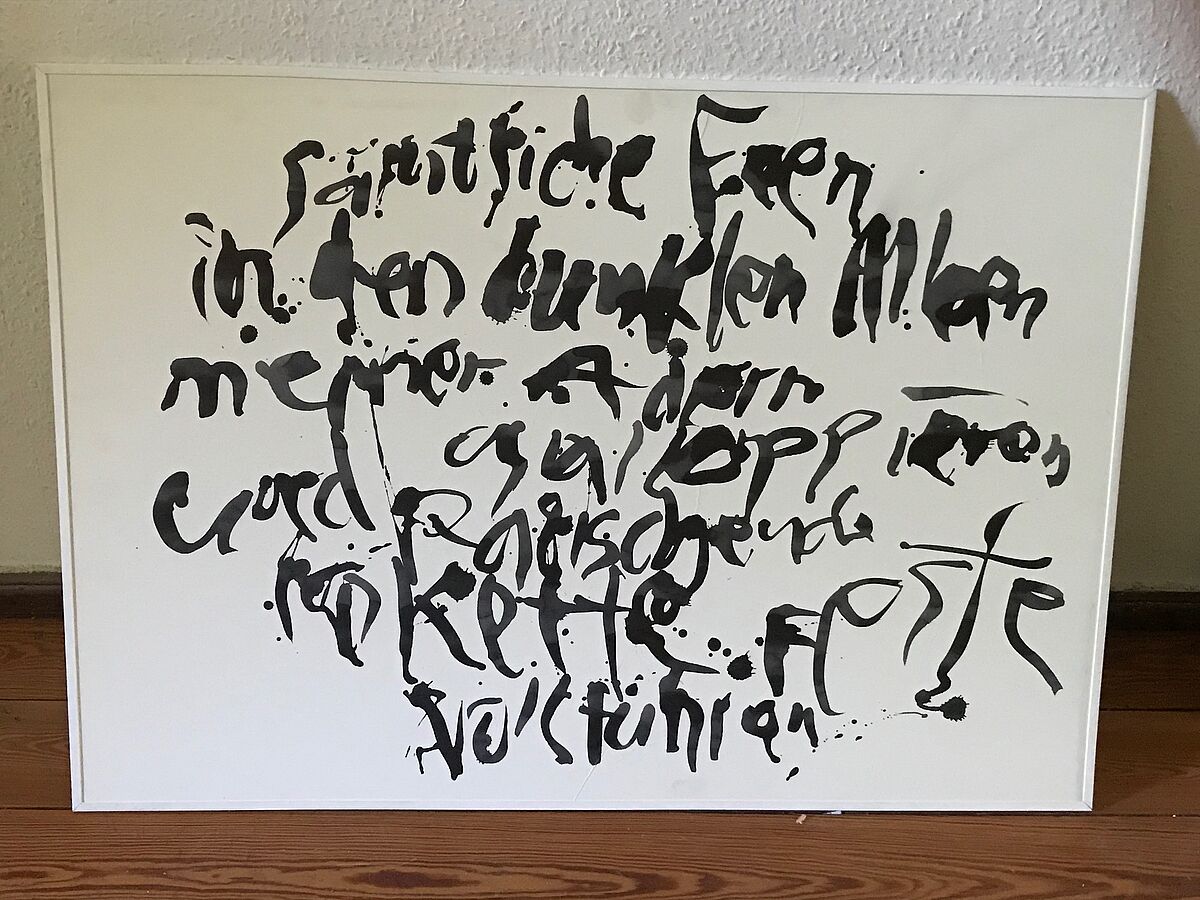 sämtliche Feen
in den dunklen Alleen
meiner Adern
galoppieren
und Rauschende
Feste
vollführen